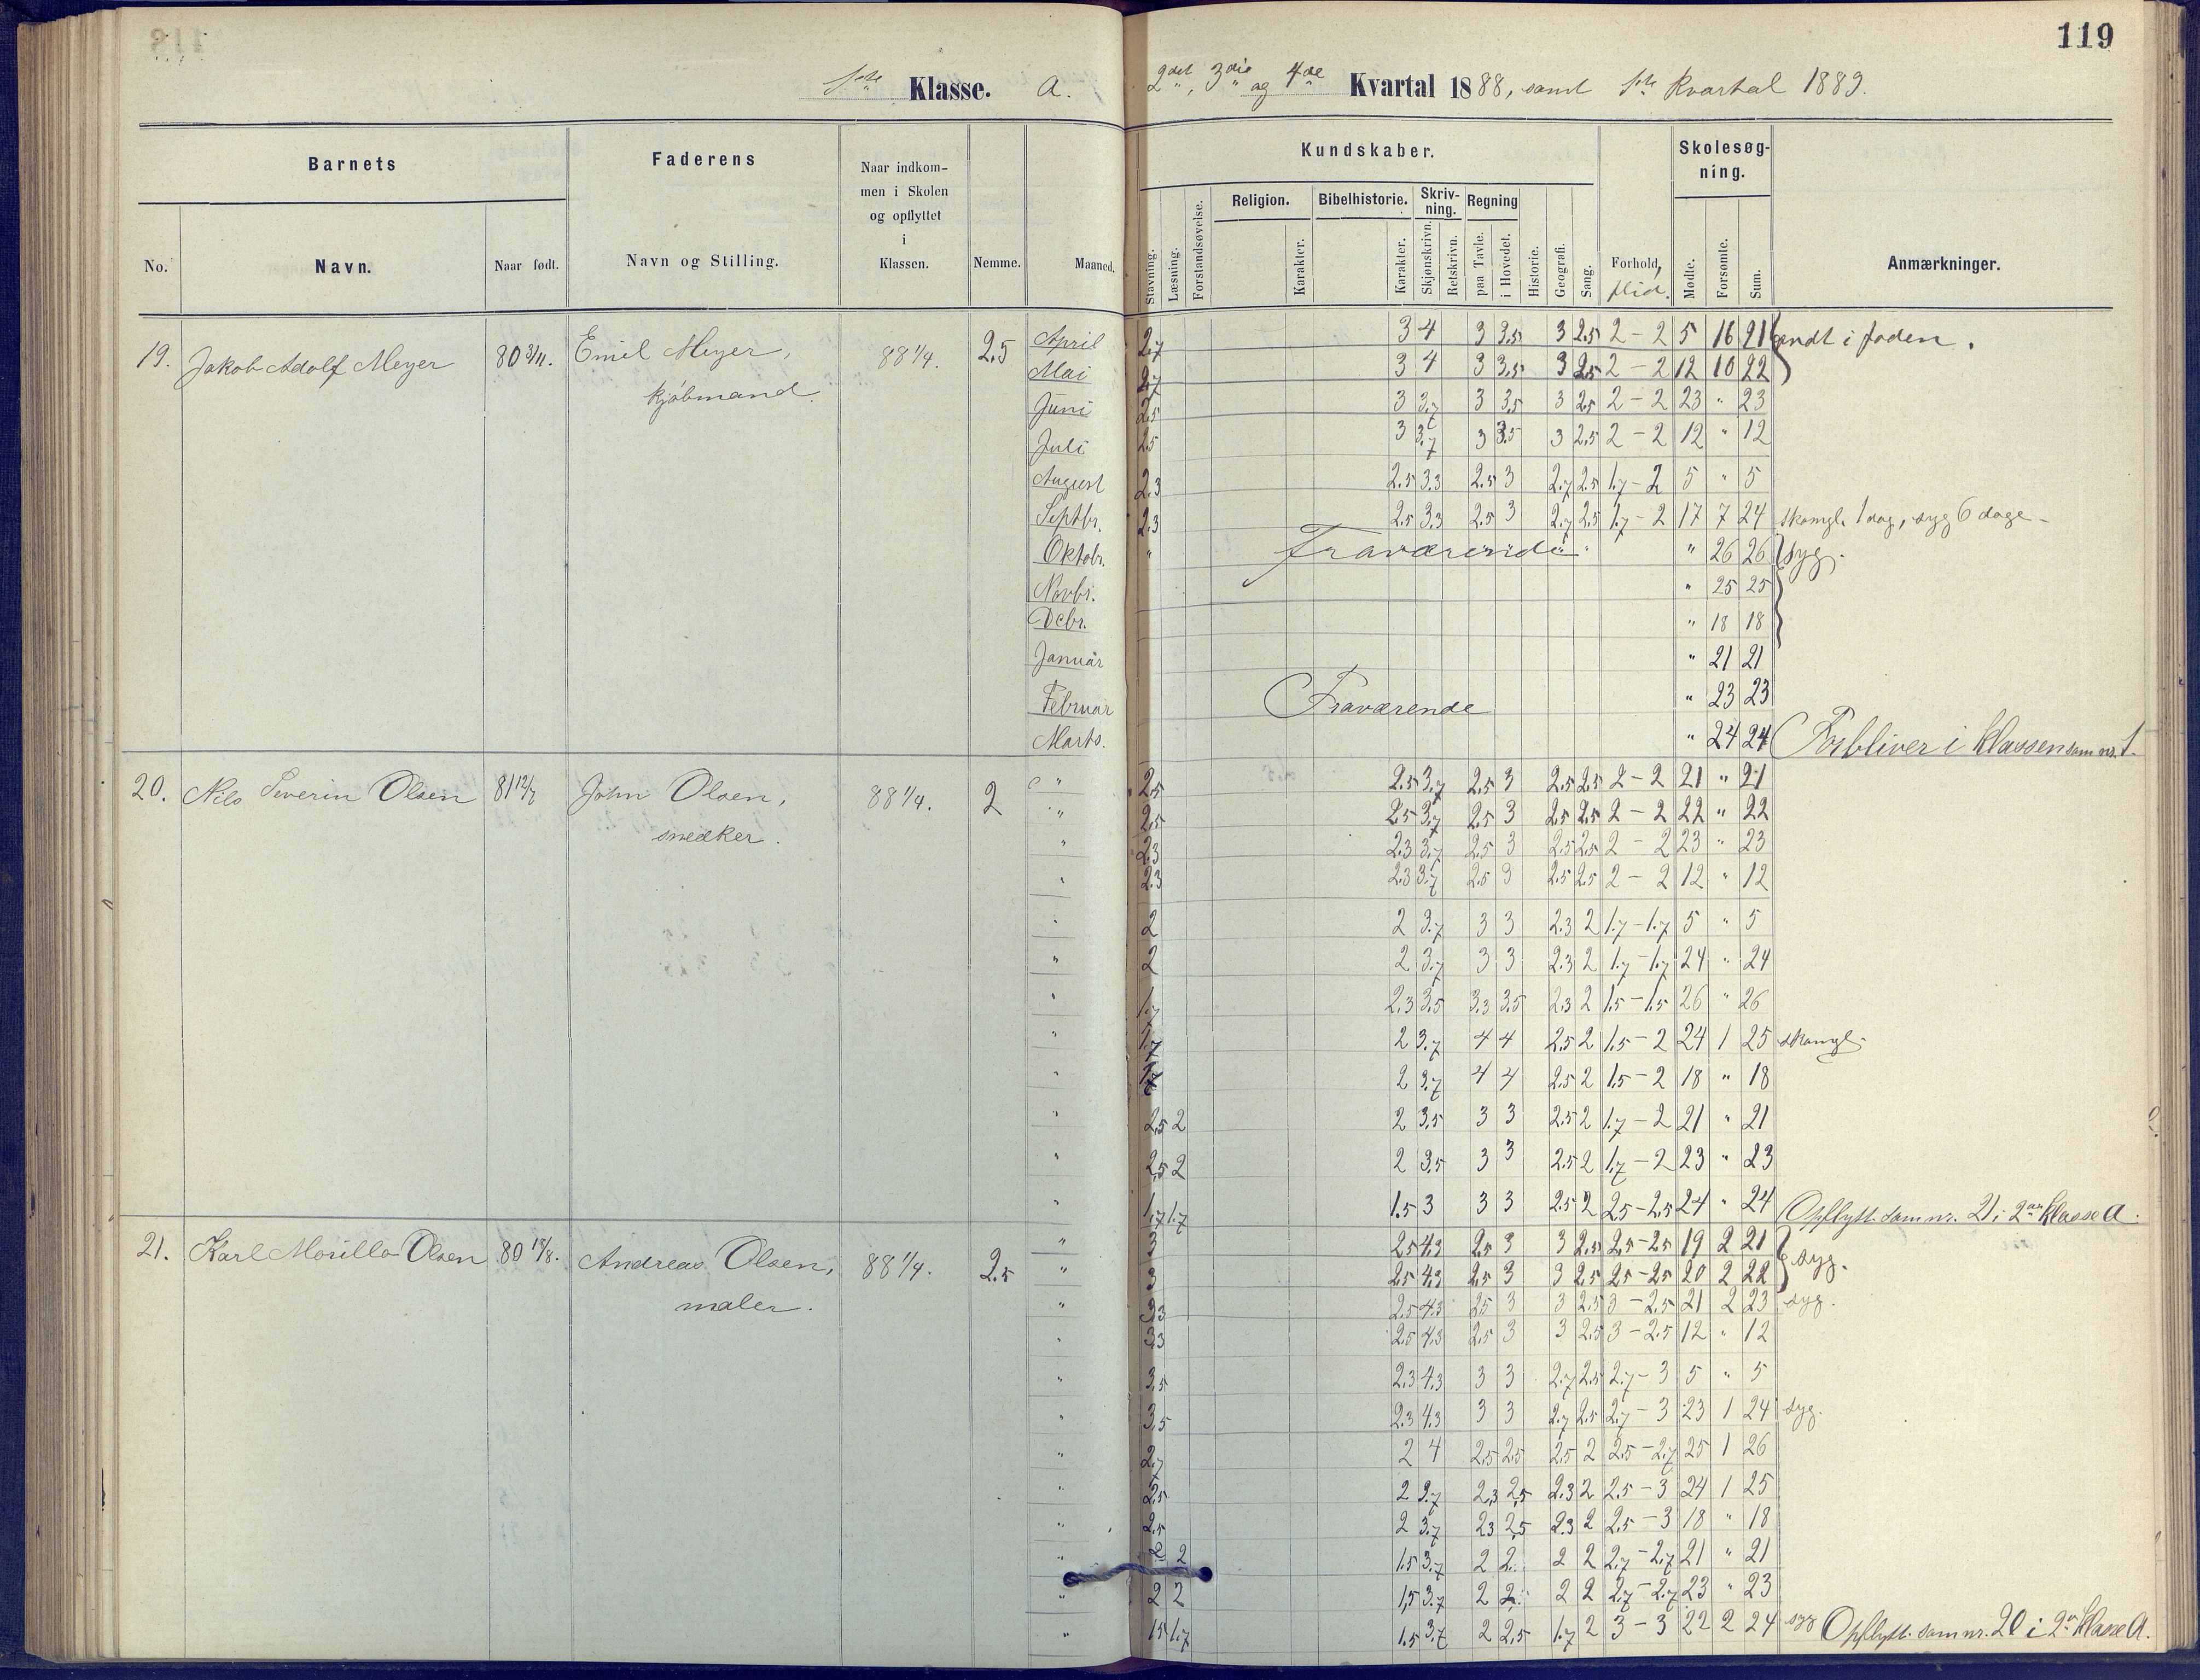 119
1ste Klasse. A. 2det, 3die og 4de Kvartal 1888, samt 1ste Kvartal 1889.
Barnets Faderens Naar indkommen i Skolen og opflyttet i Klassen. Nemme. Maaned. Kundskaber. Skolesøgning.
Religion. Bibelhistorie. Skrivning. Regning
No. Navn. Naar født. Navn og Stilling. Stavning. Læsning. Forstandsøvelse. Karakter. Karakter. Skjønskrivn. Retskrivn. paa Tavle. i Hovedet. Historie. Geografi. Sang. Forhold, flid. Mødte. Forsømte. Sum. Anmærkninger.
19. Jakob Adolf Meyer 80 3/11. Emil Meyer, kjøbmand. 88 1/4. 2,5
April 2,7 3 4 3 3,5 3 2,5 2 - 2 5 16 21 ondt i foden.
Mai 2,7 3 4 3 3,5 3 2,5 2 - 2 12 10 22
Juni 2,5 3 3,7 3 3,5 3 2,5 2 - 2 23 " 23
Juli 2,5 3 3,7 3 3,5 3 2,5 2 - 2 12 " 12
August 2,3 2,5 3,3 2,5 3 2,7 2,5 1,7 - 2 5 " 5
Septbr. 2,3 2,5 3,3 2,5 3 2,7 2,5 1,7 - 2 17 7 24 skamgl. 1 dag, syg 6 dage.
Oktobr. " Fraværende " 26 26 syg.
Novbr. " 25 25
Debr. " 18 18
Januar " 21 21
Februar Fraværende " 23 23
Marts. " 24 24 Forbliver i klassen som nr. 1.
20. Nils Severin Olsen 81 12/7 John Olsen, snedker. 88 1/4. 2
" 2,5 2,5 3,7 2,5 3 2,5 2,5 2 - 2 21 " 21
" 2,5 2,5 3,7 2,5 3 2,5 2,5 2 - 2 22 " 22
" 2,3 2,3 3,7 2,5 3 2,5 2,5 2 - 2 23 " 23
" 2,3 2,3 3,7 2,5 3 2,5 2,5 2 - 2 12 " 12
" 2 2 3,7 3 3 2,3 2 1,7 - 1,7 5 " 5
" 2 2 3,7 3 3 2,3 2 1,7 - 1,7 24 " 24
" 1,7 2,3 3,5 3,3 3,5 2,3 2 1,5 - 1,5 26 " 26
" 1,7 2 3,7 4 4 2,5 2 1,5 - 2 24 1 25 skamgl.
" 1,7 2 3,7 4 4 2,5 2 1,5 - 2 18 " 18
" 2,5 2 2 3,5 3 3 2,5 2 1,7 - 2 21 " 21
" 2,5 2 2 3,5 3 3 2,5 2 1,7 - 2 23 " 23
" 1,7 1,7 1,5 3 3 3 2,5 2 2,5 - 2,5 24 " 24 Opflytt. som nr. 21 i 2an klasse A.
21. Karl Morillo Olsen 80 18/8. Andreas Olsen, maler. 88 1/4. 2,5
" 3 2,5 4,3 2,5 3 3 2,5 2,5 - 2,5 19 2 21 syg.
" 3 2,5 4,3 2,5 3 3 2,5 2,5 - 2,5 20 2 22
" 3,3 2,5 4,3 2,5 3 3 2,5 3 - 2,5 21 2 23 syg.
" 3,3 2,5 4,3 2,5 3 3 2,5 3 - 2,5 12 " 12
" 3,5 2,3 4,3 3 3 2,7 2,5 2,7 - 3 5 " 5
" 3,5 2,3 4,3 3 3 2,7 2,5 2,7 - 3 23 1 24 syg.
" 2,7 2 4 2,5 2,5 2,5 2 2,5 - 2,7 25 1 26
" 2,5 2 3,7 2,3 2,5 2,3 2 2,5 - 3 24 1 25
" 2,5 2 3,7 2,3 2,5 2,3 2 2,5 - 3 18 " 18
" 2 2 1,5 3,7 2 2 2 2 2,7 - 2,7 21 " 21
" 2 2 1,5 3,7 2 2 2 2 2,7 - 2,7 23 " 23
" 1,5 1,7 1,5 3,7 2 2,5 1,7 2 3 - 3 22 2 24 syg Opflytt. som nr. 20 i 2an klasse A.